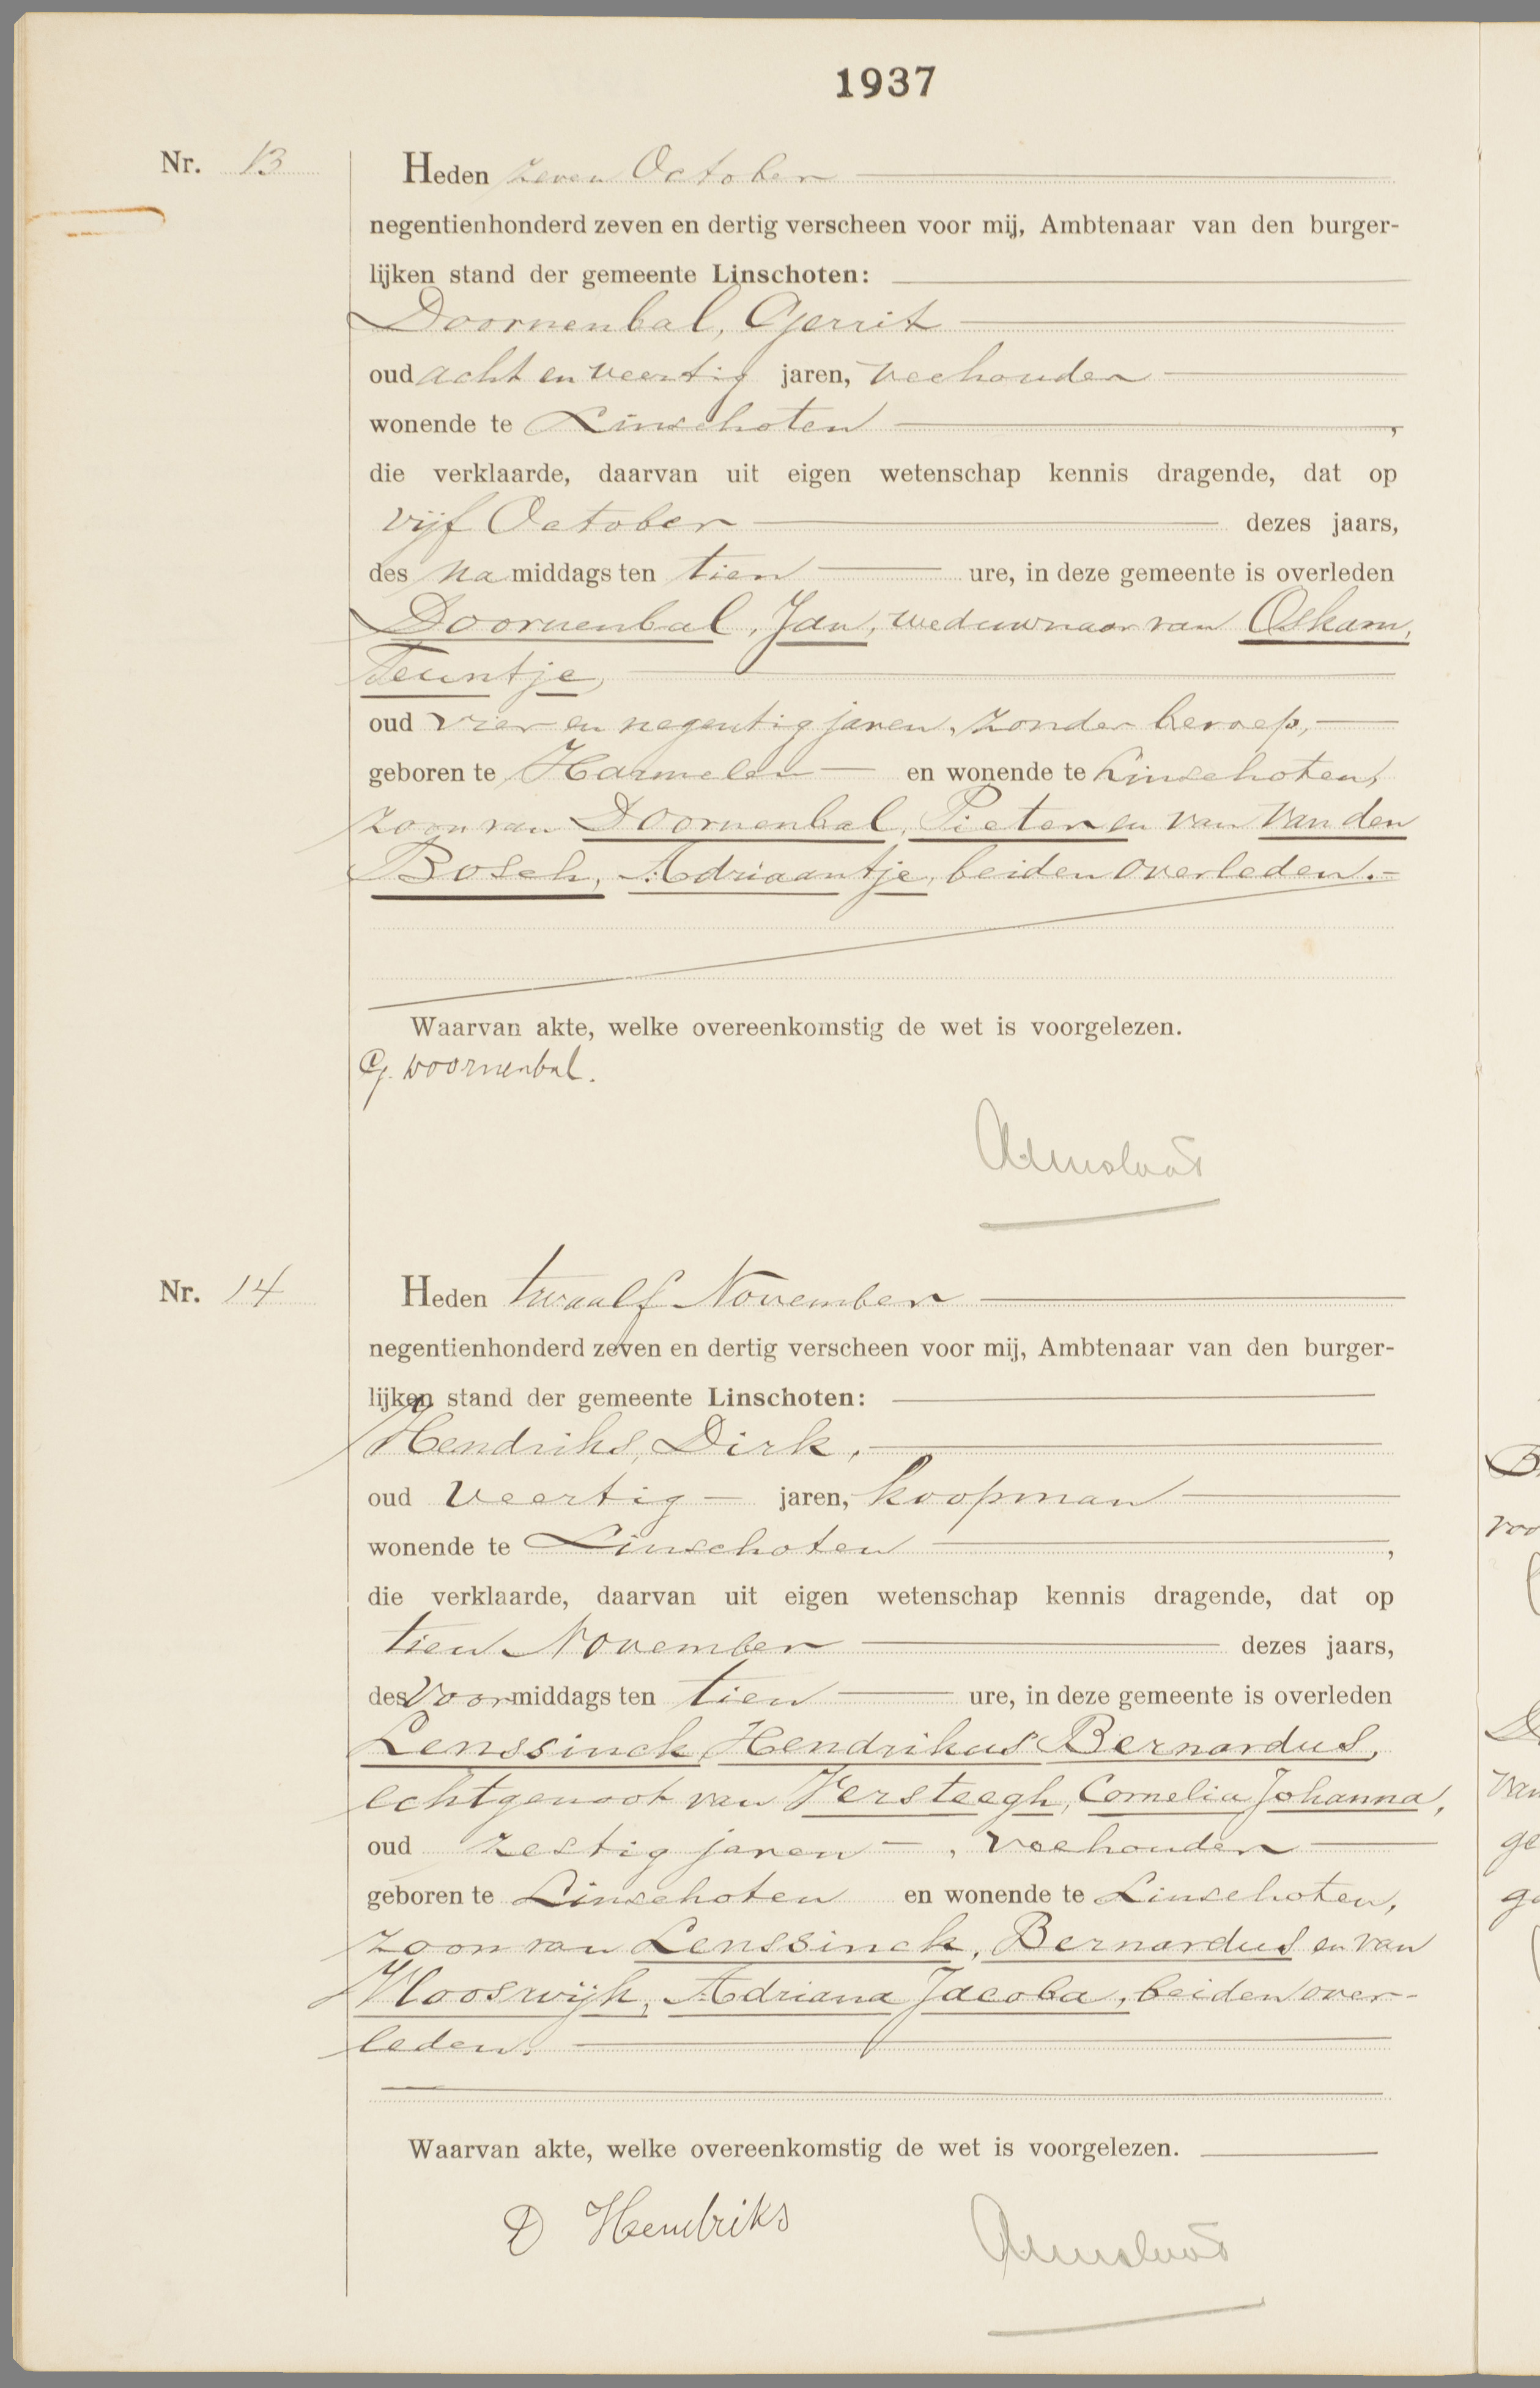 1937
Nr. 13
Heden zeven October
negentienhonderd zeven en dertig verscheen voor mij, Ambtenaar van den burger-
lijken stand der gemeente Linschoten:
Doornenbal, Gerrit
oud acht en veertig jaren, veehouder
wonende te Linschoten,
die verklaarde, daarvan uit eigen wetenschap kennis dragende, dat op
vijf October dezes jaars,
des na middags ten tien ure, in deze gemeente is overleden
Doornenbal, Jan, weduwnaar van Oskam,
Teuntje,
oud vier en negentig jaren, zonder beroep,
geboren te Harmelen en wonende te Linschoten,
zoon van Doornenbal, Pieter en van Van den
Bosch, Adriaantje, beiden overleden.
Waarvan akte, welke overeenkomstig de wet is voorgelezen.
G. Doornenbal.
Nr. 14
Heden twaalf November
negentienhonderd zeven en dertig verscheen voor mij, Ambtenaar van den burger-
lijken stand der gemeente Linschoten:
Hendriks, Dirk,
oud veertig jaren, koopman
wonende te Linschoten,
die verklaarde, daarvan uit eigen wetenschap kennis dragende, dat op
tien November dezes jaars,
des voormiddags ten tien ure, in deze gemeente is overleden
Lenssinck, Hendrikus Bernardus,
echtgenoot van Versteegh, Cornelia Johanna,
oud zestig jaren, veehouder
geboren te Linschoten en wonende te Linschoten,
zoon van Lenssinck, Bernardus en van
Vlooswijk, Adriana Jacoba, beiden over-
leden.
Waarvan akte, welke overeenkomstig de wet is voorgelezen.
D Hendriks